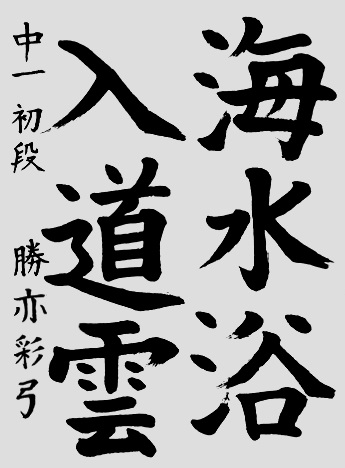 海水浴
入道雲
中一 初段 勝亦彩弓